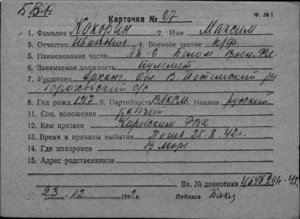 Б.В.1.
Карточка № 27
Ф. № 1
1. Фамилия Кокорин 2. Имя Максим
3. Отчество Иванович 4. Военное звание кр-ф
5. Наименование части
6. Занимаемая должность пулемет.
7. Уроженец Арханг. обл. В. Тотемский р-н
8. Год рожд. 1917 9. Партийность ВЛКСМ. Национ русский
11. Соц. положение рабочий
12. Кем призван Кировским РВК
13. Время и причины выбытия Погиб 25.8.42г.
14. Где похоронен В море
15. Адрес родственников
Вх. № донесения
23 - 12 1942 г. Подпись